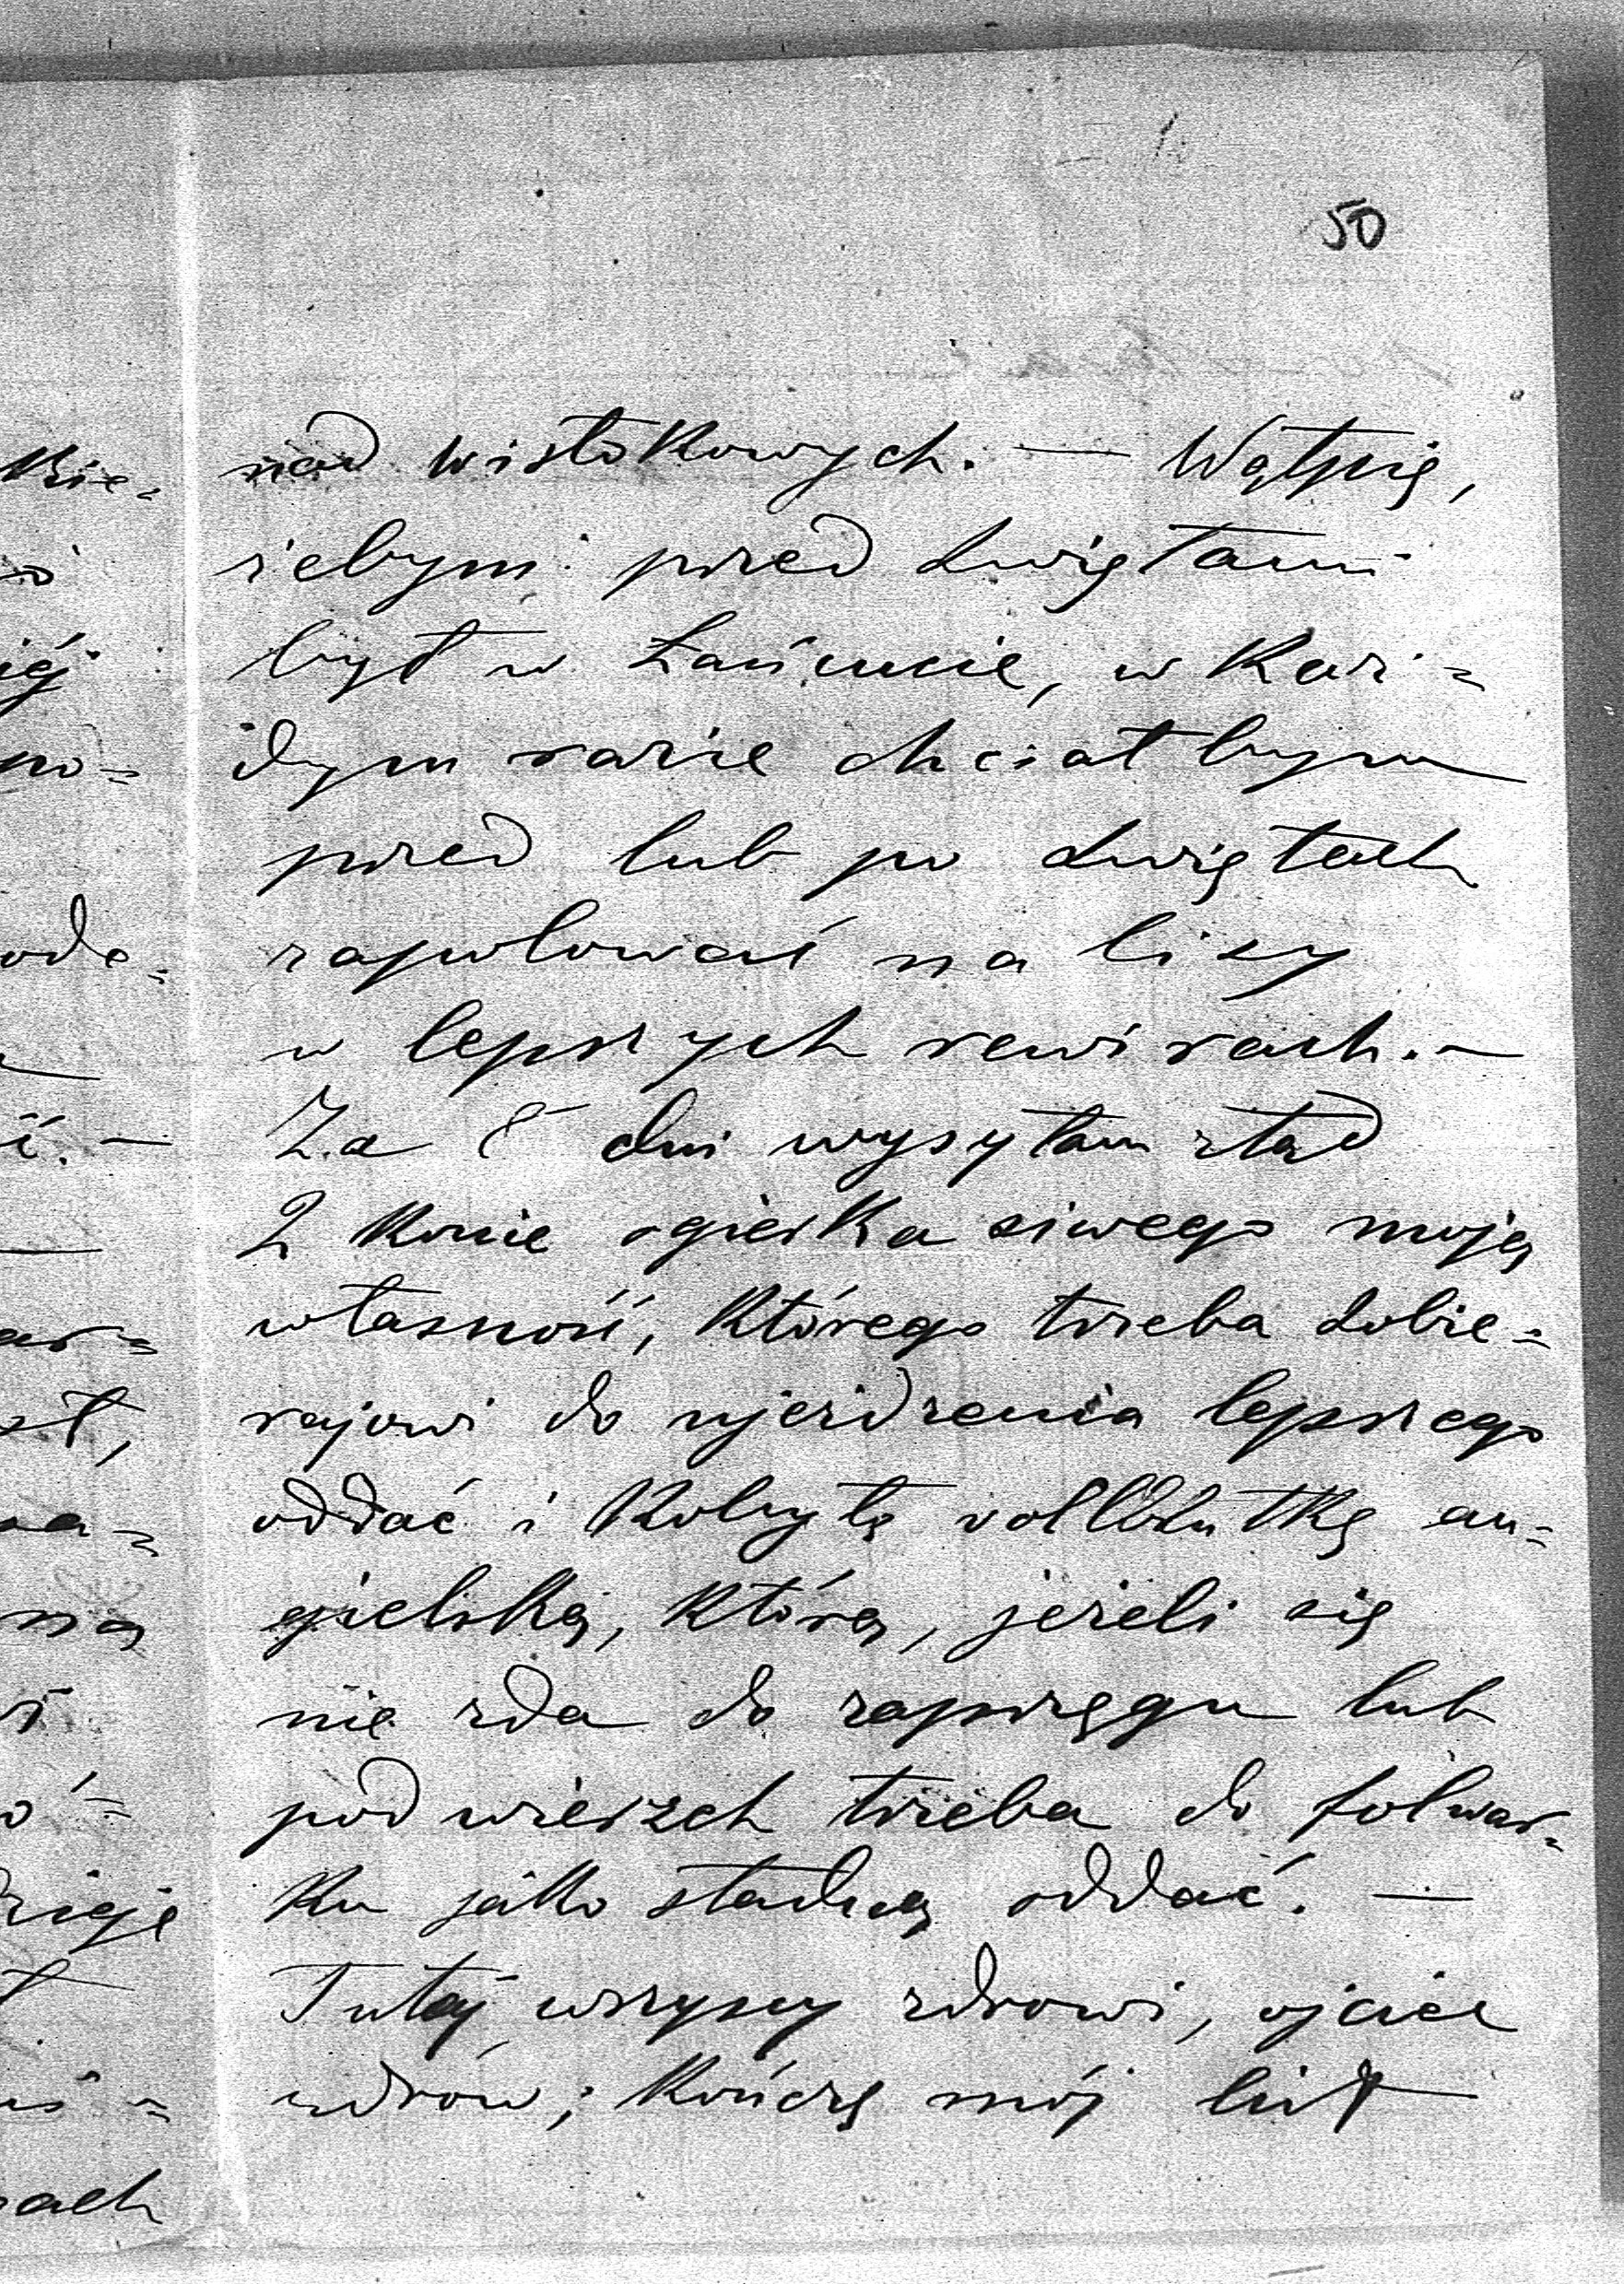 50
nad wisłokowych. — Wątpię,
żebym przed świętami
był w Łańcucie, w każ=
dym razie chciałbym
przed lub po świętach
zapolować na lisy
w lepszych rewirach. —
Za 8 dni wysyłam ztąd
2 konie ogierka siwego moją
własność, którego trzeba dobie=
rajowi do ujeżdżenia lepszego
oddać i kobyłę vollblutkę an=
gielską, którą, jeżeli się
nie zda do zaprzęgu lub
pod wierzch trzeba do folwar=
ku jako stadną oddać. —
Tutaj wszyscy zdrowi, ojciec
zdrów; kończę mój list